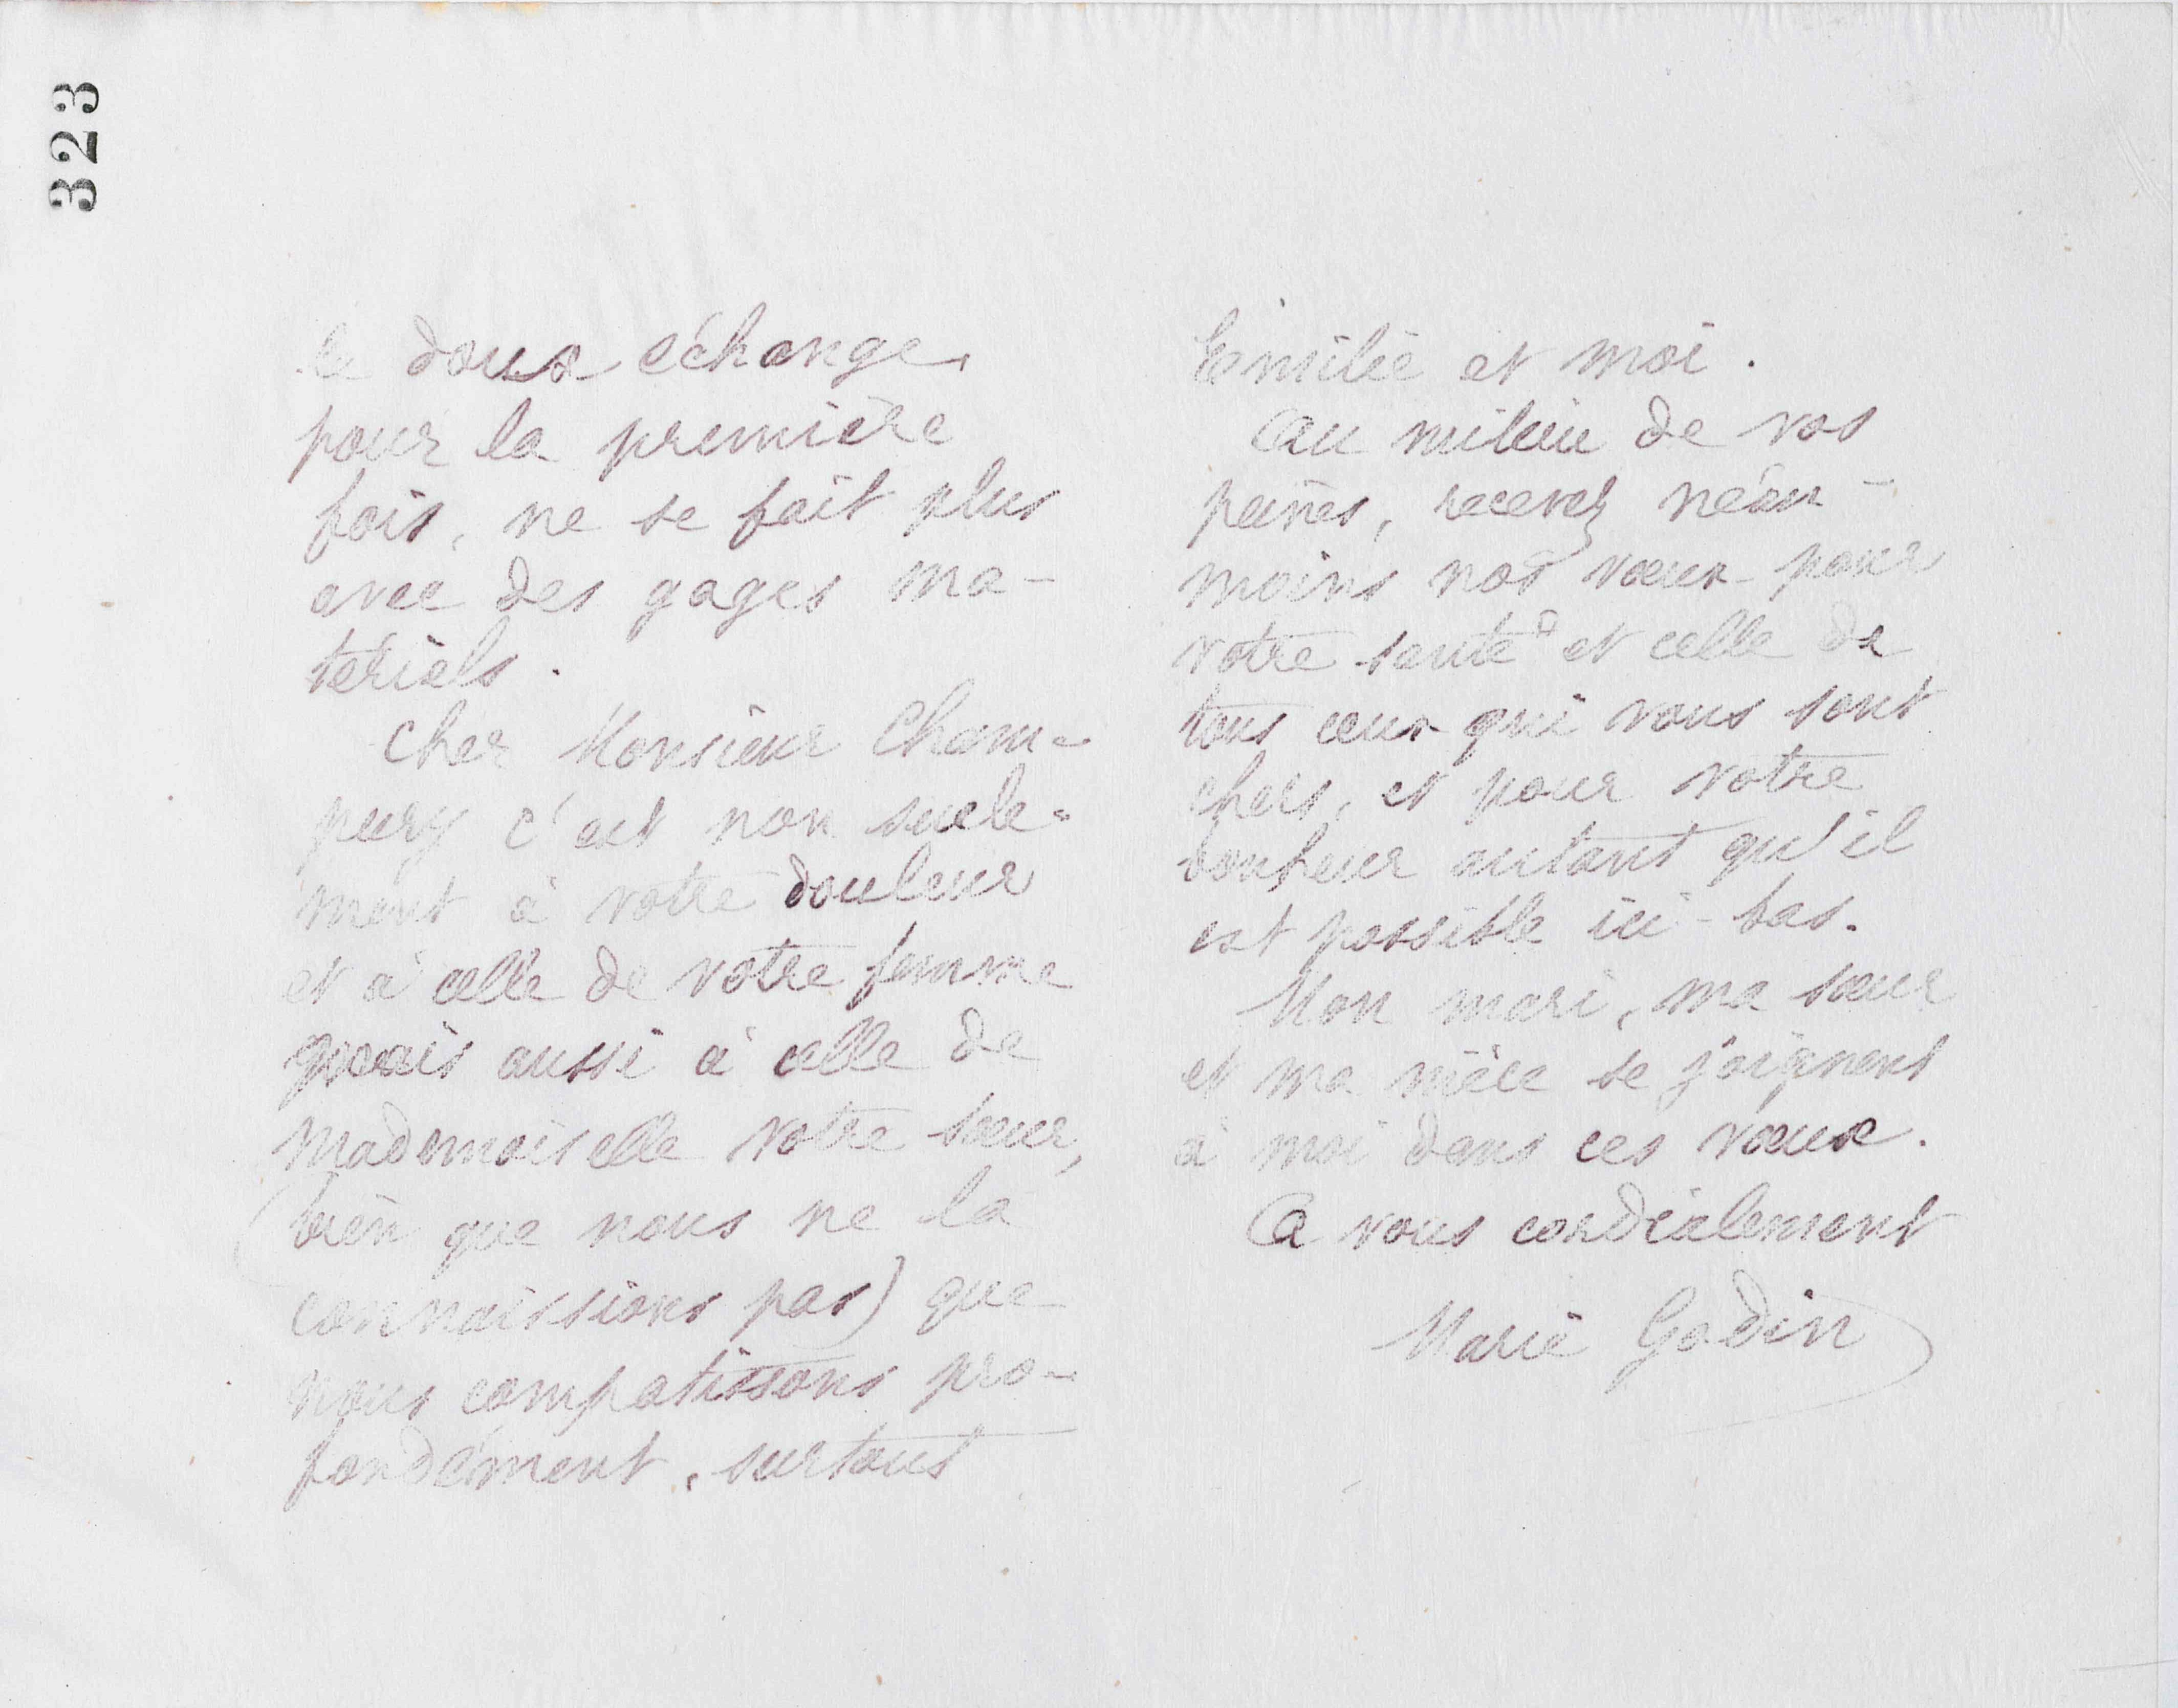 323
le doux échange,
pour la première
fois, ne se fait plus
avec des gages ma-
tériels.
Cher Monsieur Cham-
pury c'est non seule-
ment à votre douleur
et à celle de votre femme
mais aussi à celle de
Mademoiselle votre sœur,
(bien que nous ne la
connaissions pas) que
nous compatissons pro-
fondément, surtout
Emilie et moi.
Au milieu de vos
peines, recevez néan-
moins nos vœux pour
votre santé et celle de
tous ceux qui vous sont
chers, et pour votre
bonheur autant qu'il
est possible ici-bas.
Mon mari, ma sœur
et ma nièce se joignent
à moi dans ces vœux.
A vous cordialement
Marie Godin